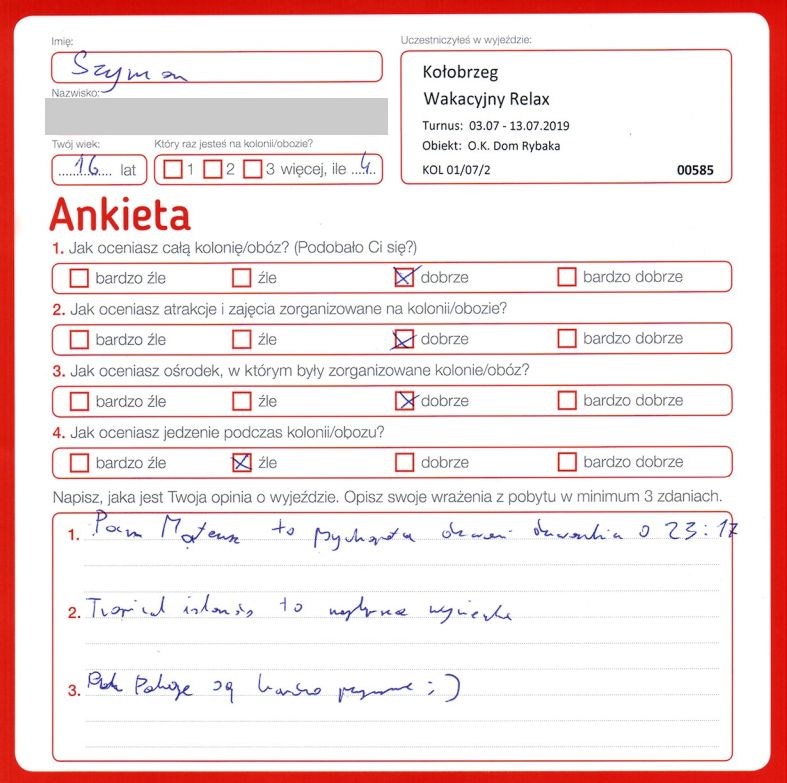 Imię:
Szymon
Nazwisko:
Twój wiek:
16 lat
Który raz jesteś na kolonii/obozie?
1 2 3 więcej, ile 4
Uczestniczyłeś w wyjeździe:
Kołobrzeg
Wakacyjny Relax
Turnus: 03.07 - 13.07.2019
Obiekt: O.K. Dom Rybaka
KOL 01/07/2 00585
Ankieta
1. Jak oceniasz całą kolonię/obóz? (Podobało Ci się?)
bardzo źle źle dobrze bardzo dobrze
2. Jak oceniasz atrakcje i zajęcia zorganizowane na kolonii/obozie?
bardzo źle źle dobrze bardzo dobrze
3. Jak oceniasz ośrodek, w którym były zorganizowane kolonie/obóz?
bardzo źle źle dobrze bardzo dobrze
4. Jak oceniasz jedzenie podczas kolonii/obozu?
bardzo źle źle dobrze bardzo dobrze
Napisz, jaka jest Twoja opinia o wyjeździe. Opisz swoje wrażenia z pobytu w minimum 3 zdaniach.
1. Pan Mateusz to psychopata o 23:17
2. Tropical islands to najlepsza wycieczka
3. Pokoje są bardzo ;)